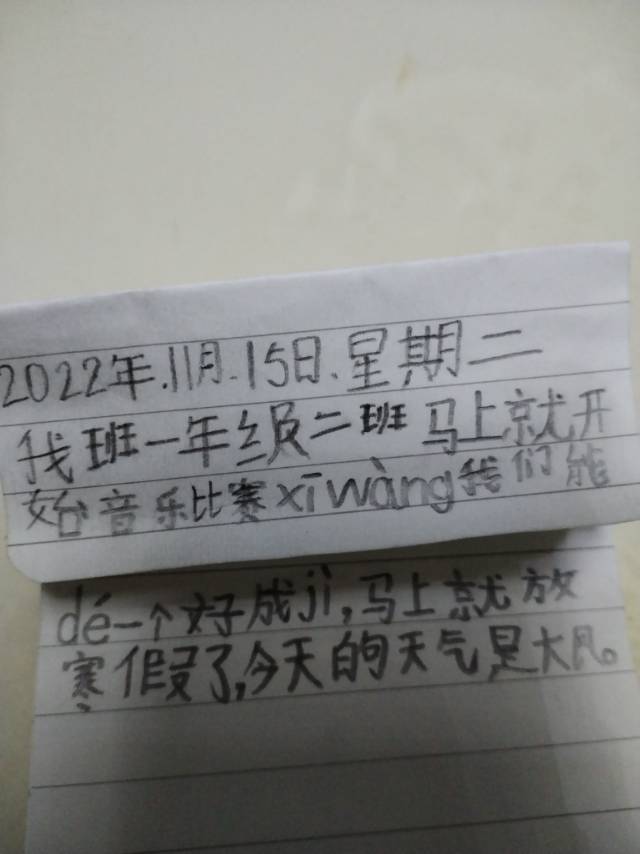 2022年.11月.15日.星期二
我班一年级二班马上就开
始音乐比赛xīwàng我们能
dé一个好成jì,马上就放
寒假了,今天的天气是大风。